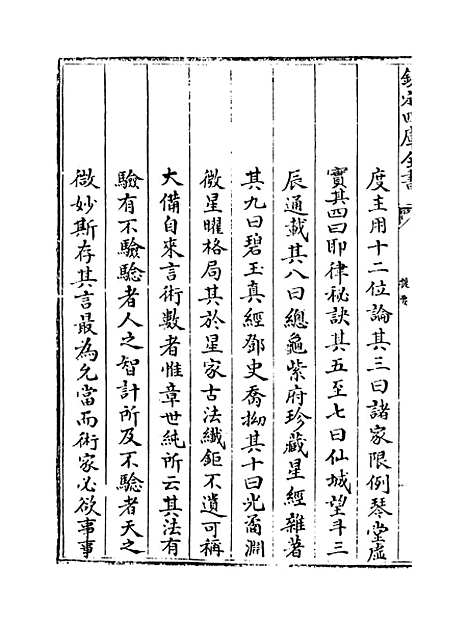 欽定四庫全書
提要
度主用十二位論其三曰諸家限例琴堂虛
實其四曰耶律秘訣其五至七曰仙城望斗三
辰通載其八曰總龜紫府珍藏星經雜著
其九曰碧玉真經鄧史喬拗其十曰光矞淵
微星曜格局其於星家古法纖鉅不遺可稱
大備自來言術數者惟章世純所云其法有
驗有不驗驗者人之智計所及不驗者天之
微妙斯存其言最為允當而術家必欲事事